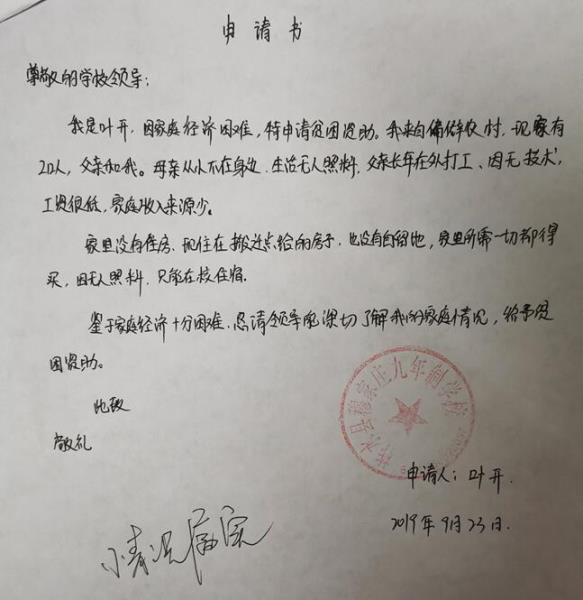 申请书
尊敬的学校领导：
我是叶开，因家庭经济困难，特申请贫困资助。我来自偏僻农村，现家有
2口人，父亲和我。母亲从小不在身边，生活无人照料，父亲长年在外打工、因无技术，
工资很低，家庭收入来源少。
家里没有住房、现住在搬迁点给的房子，也没有自留地，家里所需一切都得
买，因无人照料，只能在校住宿.
鉴于家庭经济十分困难、恳请领导能深切了解我的家庭情况，给予贫
困资助。
此致
敬礼
柞水县穆家庄九年制学校
申请人：叶开.
2019年9月23日.
情况属实